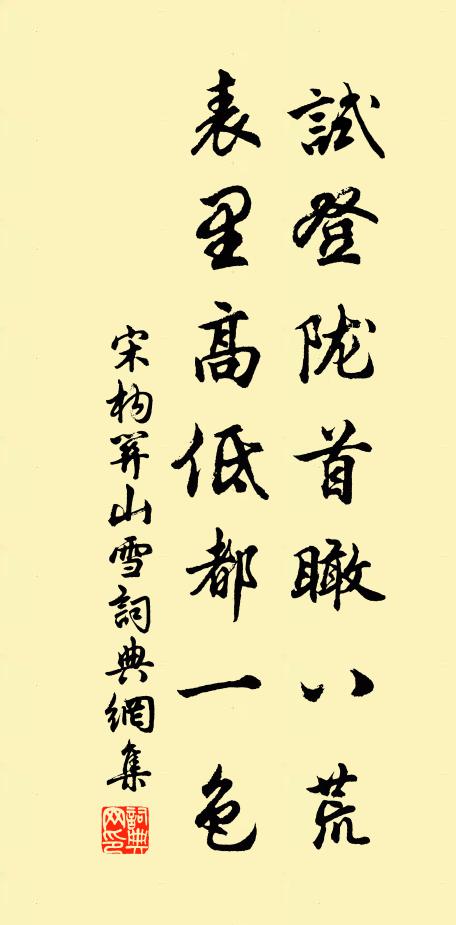 試登陇首瞰八荒
表里高低都一色
宋构關山雪詞典網集
詞典网印